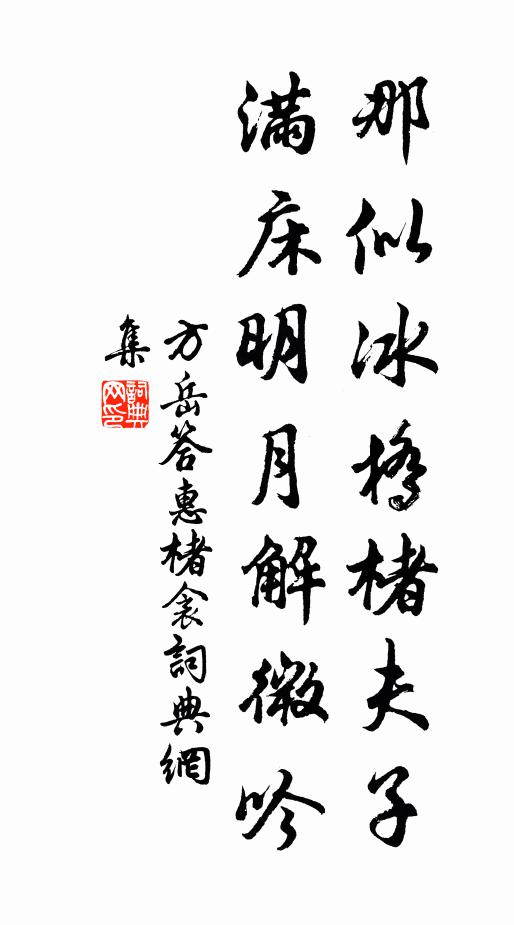 那似冰桥楮夫子
满床明月解微吟
方岳答惠楮衾詞典網
集
詞典
网印